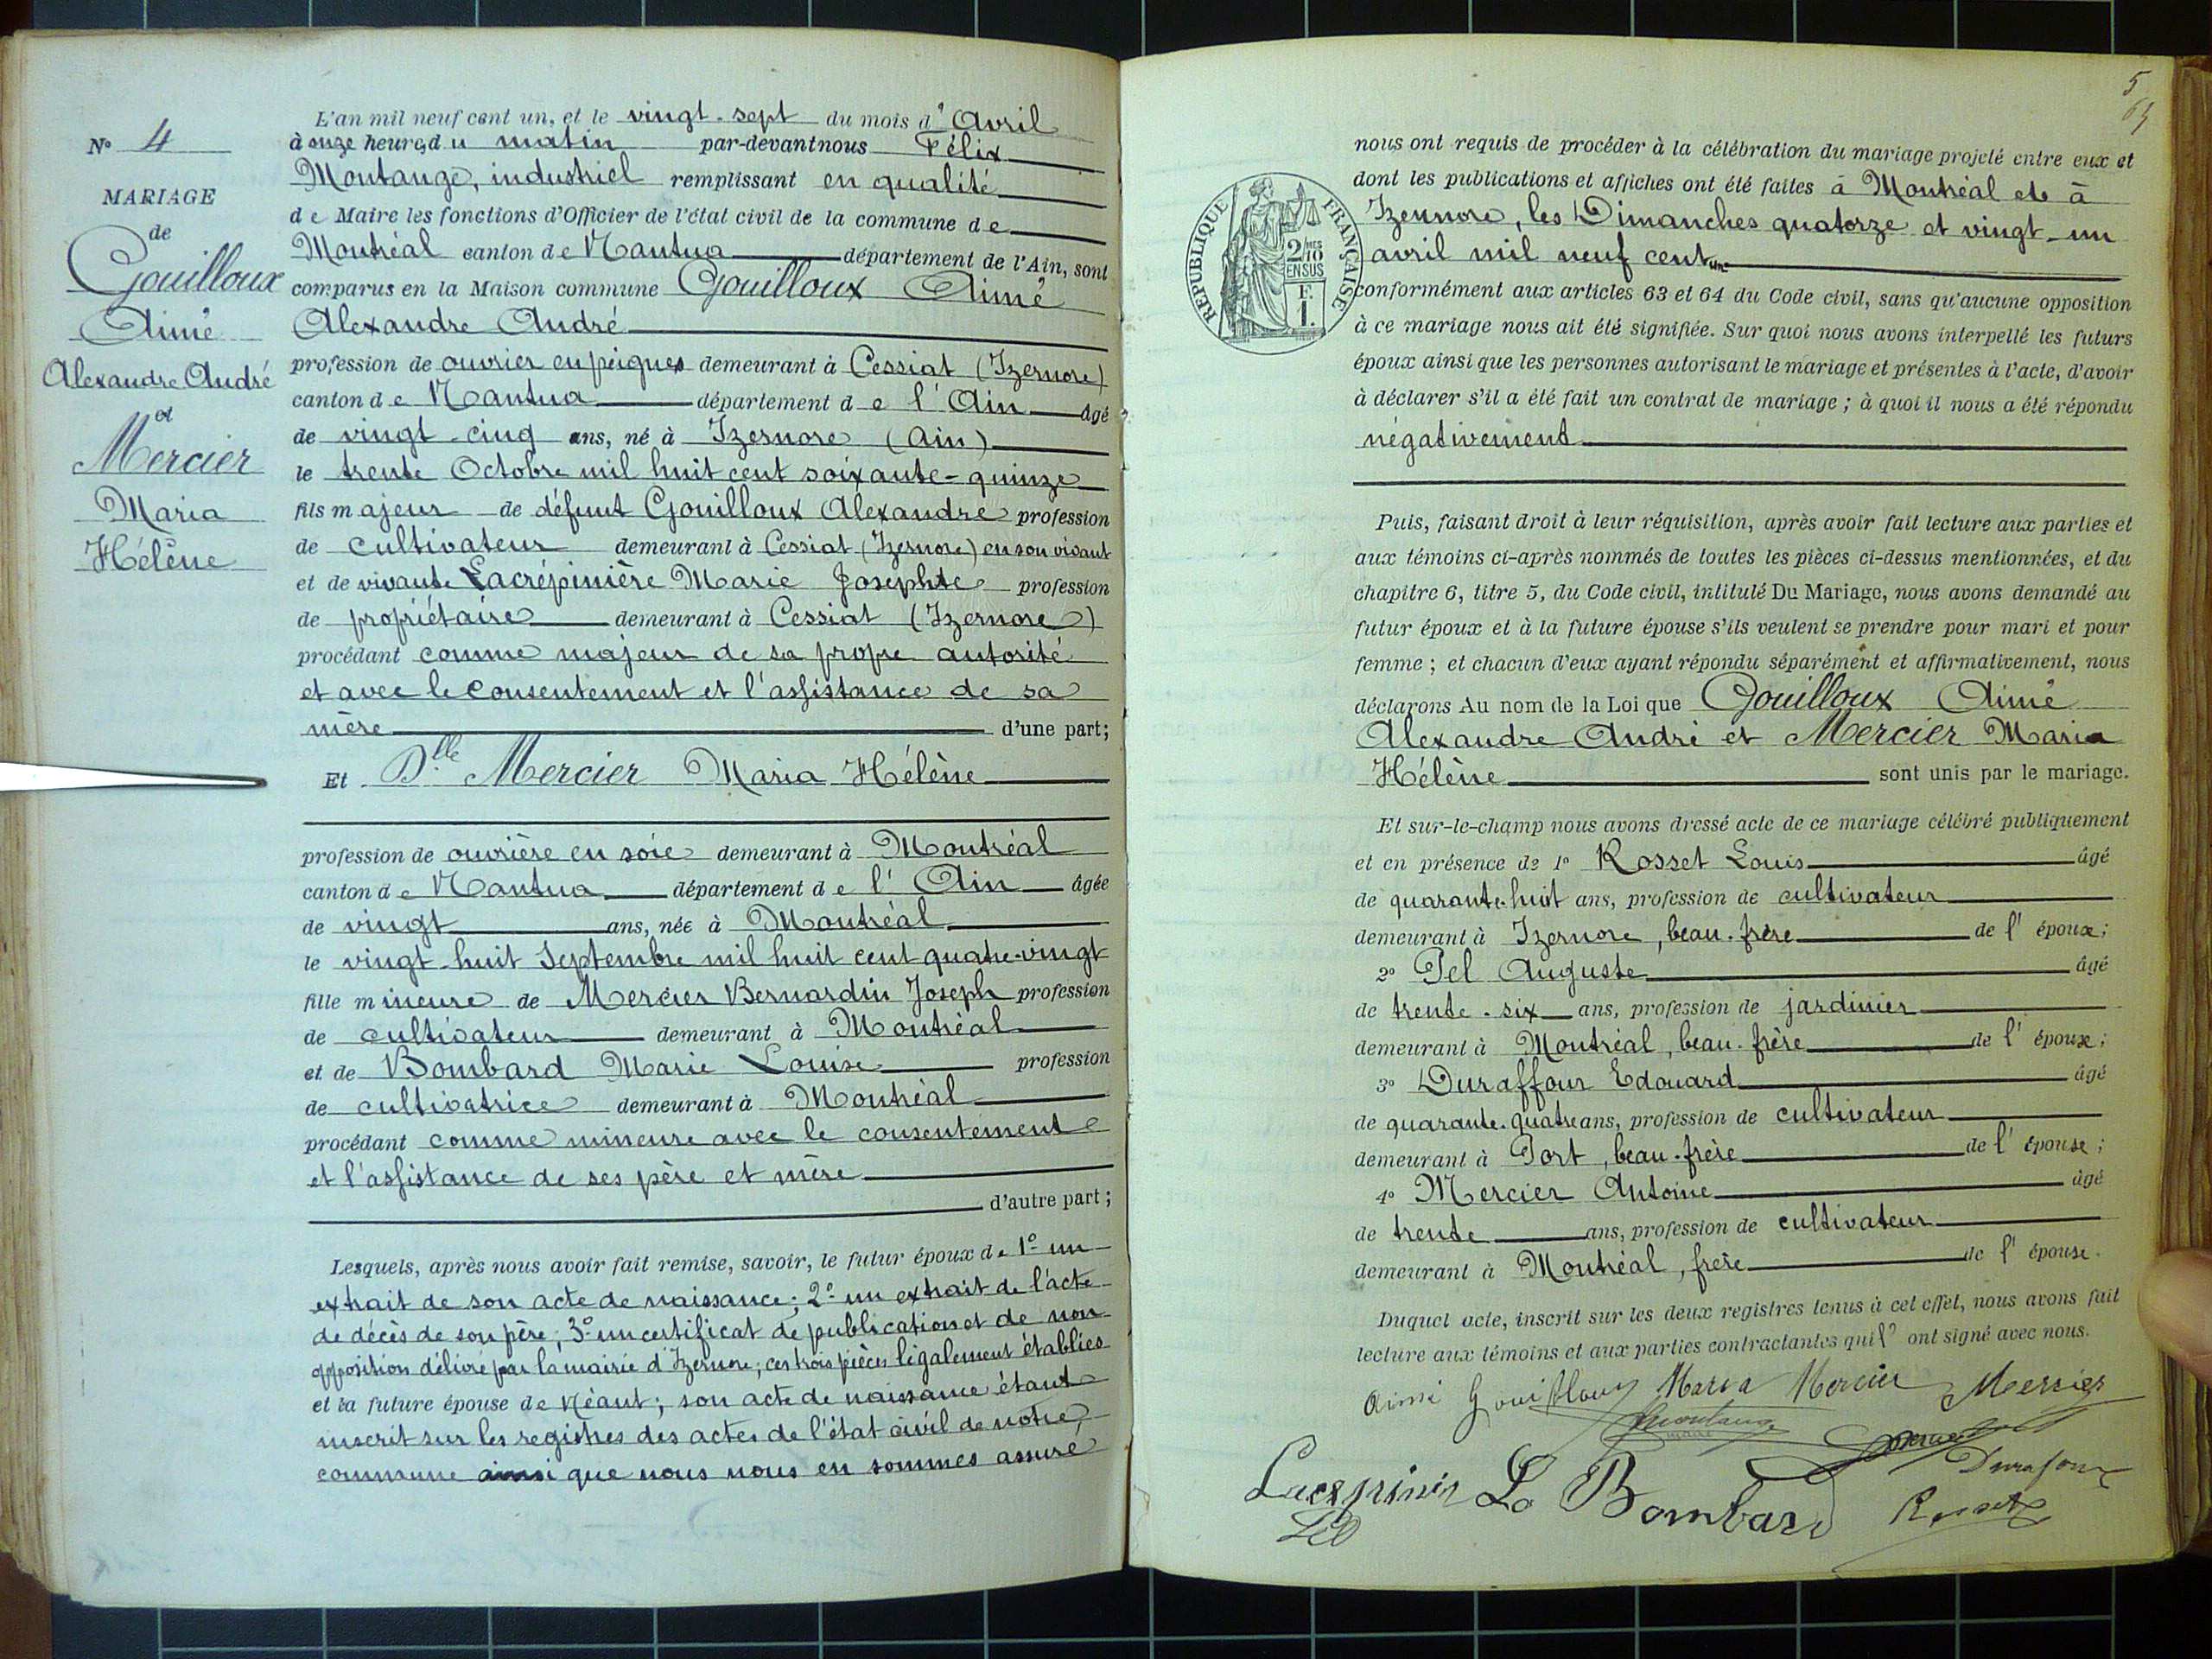 N° 4
MARIAGE
de
Gouilloux
Aimé
Alexandre André
et
Mercier
Maria
Hélène
L'an mil neuf cent un, et le vingt-sept du mois d'Avril
à onze heures du matin par-devant nous Félix
Montange, industriel remplissant en qualité
de Maire les fonctions d'Officier de l'état civil de la commune de
Montréal canton de Nantua département de l'Ain, sont
comparus en la Maison commune Gouilloux Aimé
Alexandre André
profession de ouvrier en peignes demeurant à Cessiat (Izernore)
canton de Nantua département de l'Ain âgé
de vingt-cinq ans, né à Izernore (Ain)
le trente Octobre mil huit cent soixante-quinze
fils majeur de défunt Gouilloux Alexandre profession
de cultivateur demeurant à Cessiat (Izernore) en son vivant
et de vivante Lacrépinière Marie Josephte profession
de propriétaire demeurant à Cessiat (Izernore)
procédant comme majeur de sa propre autorité
et avec le consentement et l'assistance de sa
mère d'une part;
Et Dlle Mercier Maria Hélène
profession de ouvrière en soie demeurant à Montréal
canton de Nantua département de l'Ain âgée
de vingt ans, née à Montréal
le vingt-huit Septembre mil huit cent quatre-vingt
fille mineure de Mercier Bernardin Joseph profession
de cultivateur demeurant à Montréal
et de Bombard Marie Louise profession
de cultivatrice demeurant à Montréal
procédant comme mineure avec le consentement
et l'assistance de ses père et mère
d'autre part;
Lesquels, après nous avoir fait remise, savoir, le futur époux de 1° un
extrait de son acte de naissance; 2° un extrait de l'acte
de décès de son père; 3° un certificat de publication et de non
opposition délivré par la mairie d'Izernore; ces trois pièces légalement établies
et la future épouse de Néant; son acte de naissance étant
inscrit sur les registres des actes de l'état civil de notre
commune ainsi que nous nous en sommes assuré
5
RÉPUBLIQUE FRANÇAISE
2/10
EN SUS
F.
1.
nous ont requis de procéder à la célébration du mariage projeté entre eux et
dont les publications et affiches ont été faites à Montréal et à
Izernore, les Dimanches quatorze et vingt-un
avril mil neuf cent un
conformément aux articles 63 et 64 du Code civil, sans qu'aucune opposition
à ce mariage nous ait été signifiée. Sur quoi nous avons interpellé les futurs
époux ainsi que les personnes autorisant le mariage et présentes à l'acte, d'avoir
à déclarer s'il a été fait un contrat de mariage; à quoi il nous a été répondu
négativement
Puis, faisant droit à leur réquisition, après avoir fait lecture aux parties et
aux témoins ci-après nommés de toutes les pièces ci-dessus mentionnées, et du
chapitre 6, titre 5, du Code civil, intitulé Du Mariage, nous avons demandé au
futur époux et à la future épouse s'ils veulent se prendre pour mari et pour
femme; et chacun d'eux ayant répondu séparément et affirmativement, nous
déclarons Au nom de la Loi que Gouilloux Aimé
Alexandre André et Mercier Maria
Hélène sont unis par le mariage.
Et sur-le-champ nous avons dressé acte de ce mariage célébré publiquement
et en présence de 1° Rosset Louis âgé
de quarante-huit ans, profession de cultivateur
demeurant à Izernore, beau-frère de l'époux;
2° Pel Auguste âgé
de trente-six ans, profession de jardinier
demeurant à Montréal, beau-frère de l'époux;
3° Duraffour Edouard âgé
de quarante-quatre ans, profession de cultivateur
demeurant à Port, beau-frère de l'épouse;
4° Mercier Antoine âgé
de trente ans, profession de cultivateur
demeurant à Montréal, frère de l'épouse.
Duquel acte, inscrit sur les deux registres tenus à cet effet, nous avons fait
lecture aux témoins et aux parties contractantes qui ont signé avec nous.
Aimé Gouilloux Maria Mercier Mercier
Montange
maire
Durafour
Bombard Rosset